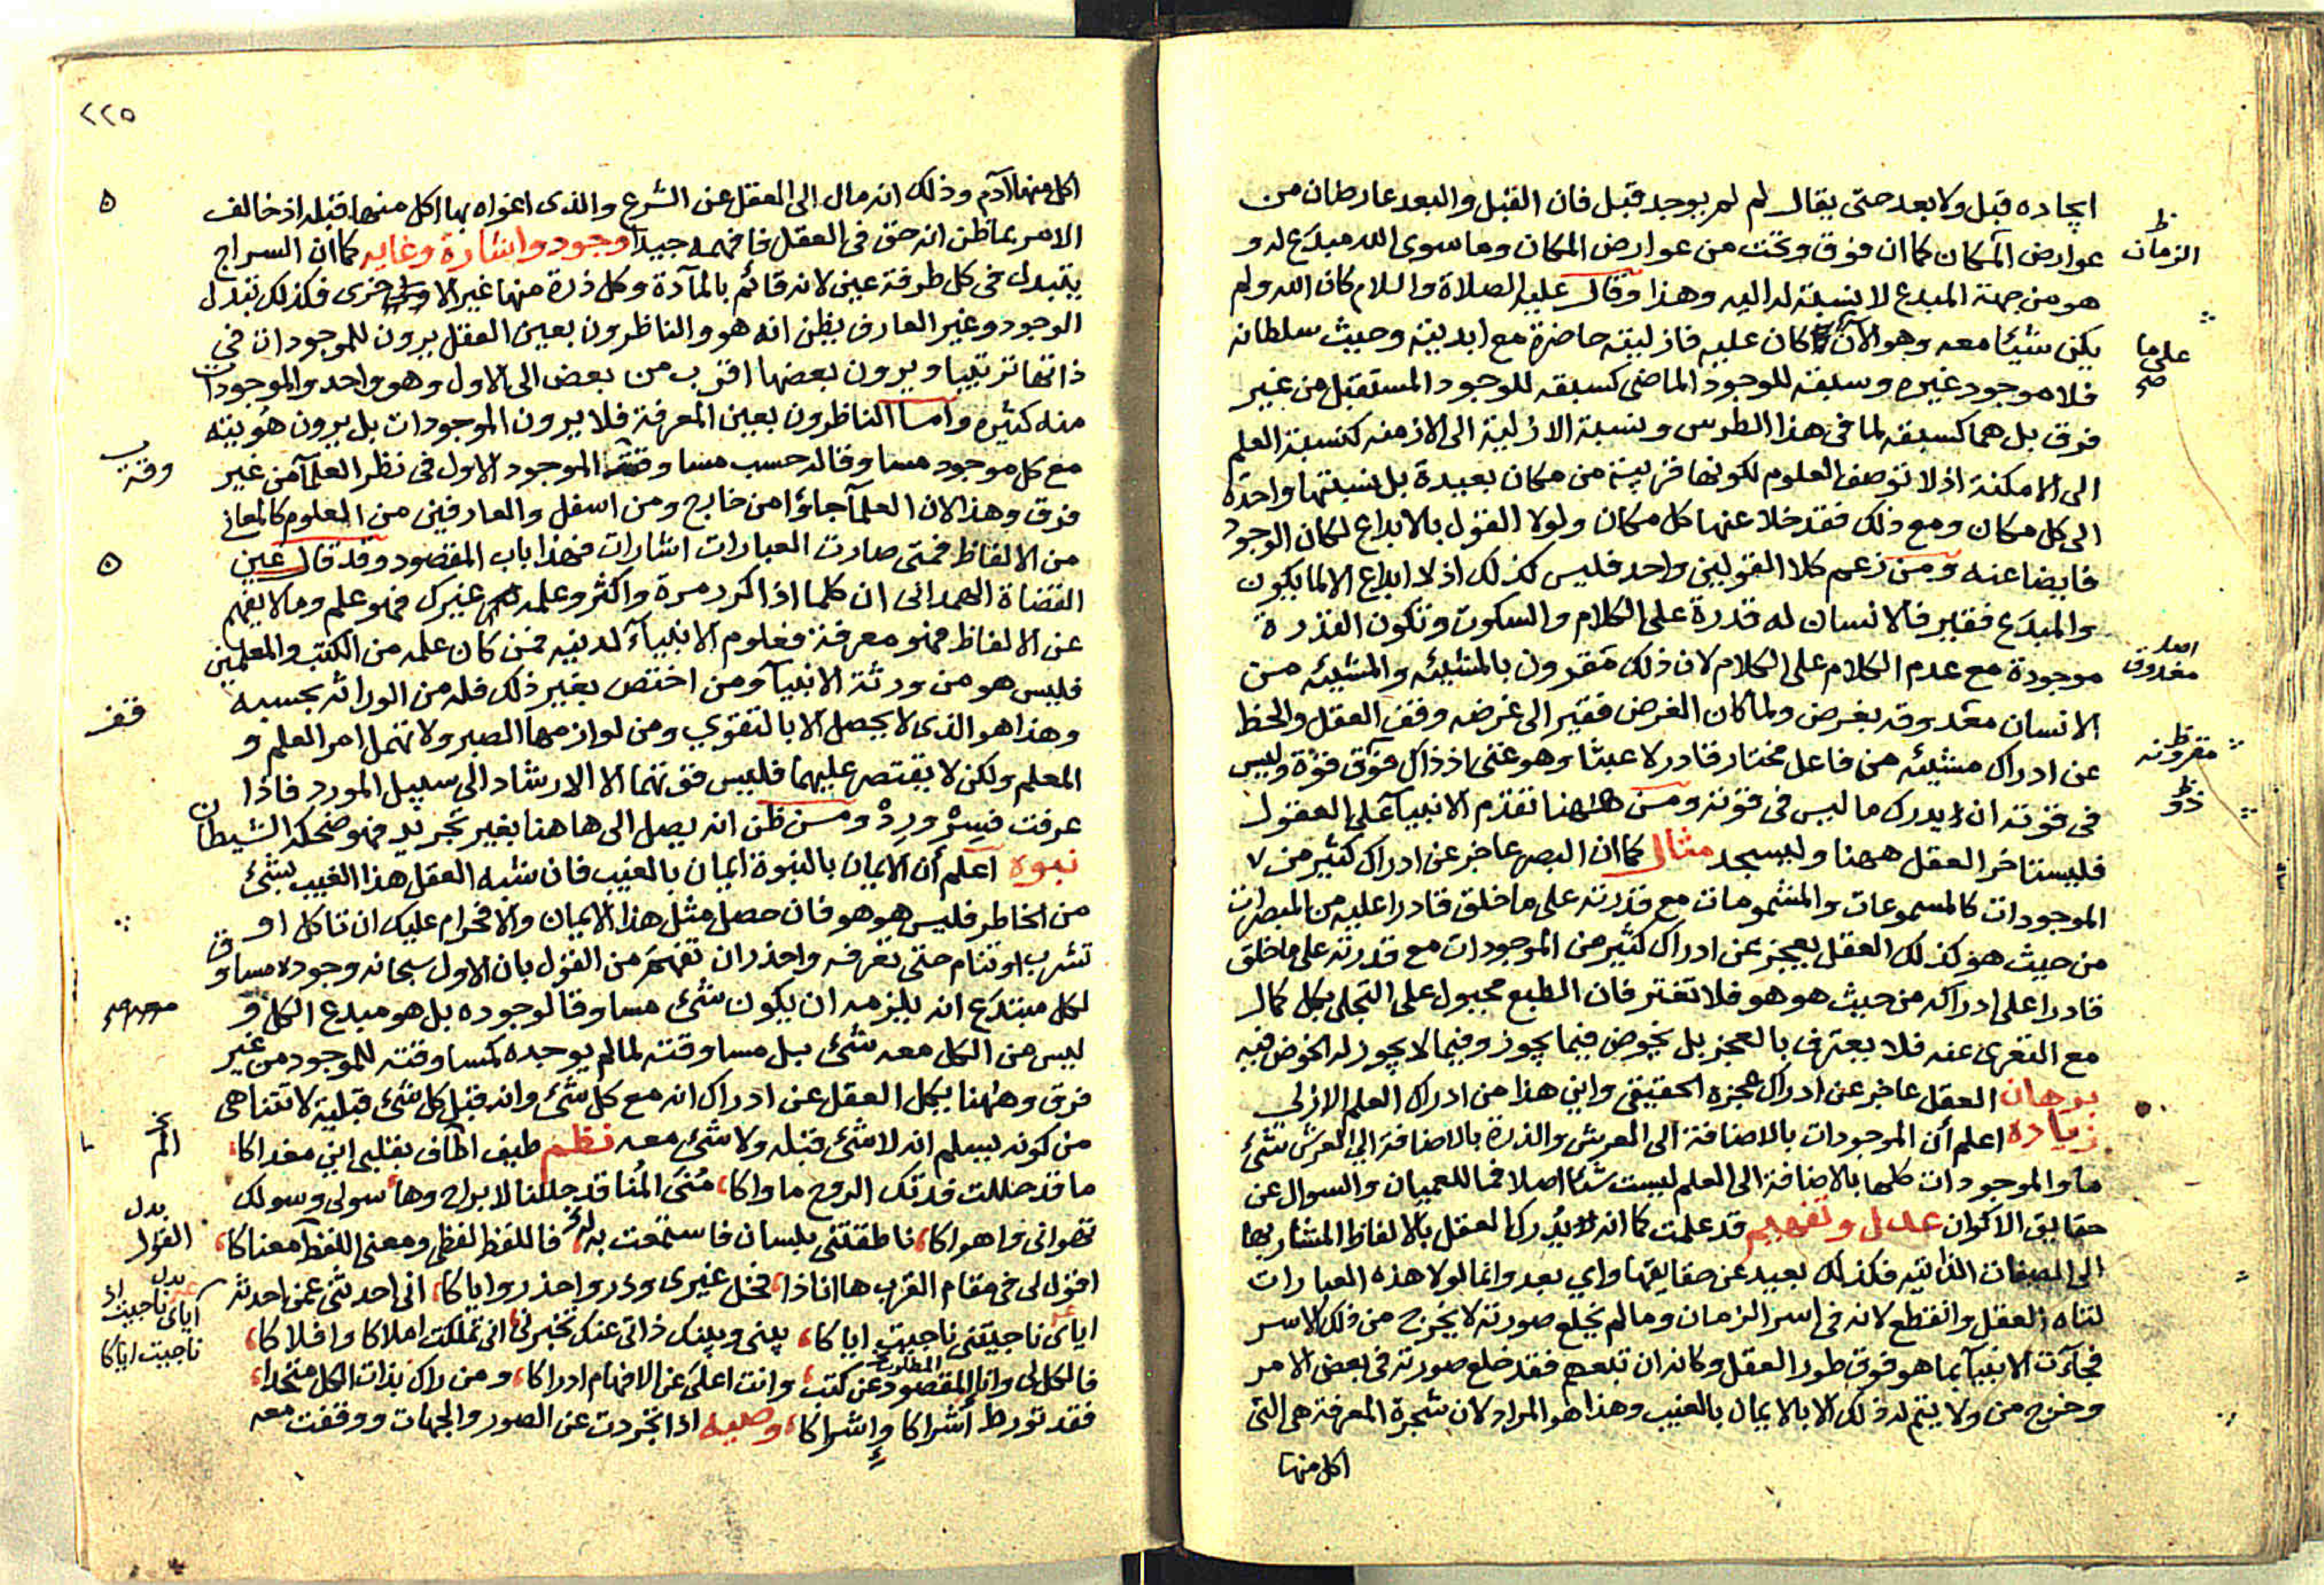 ايجاده قبل ولا بعد حتى يقال لم لم يوجد قبل فان القبل والبعد عارضان من
عوارض المكان كما ان فوق وتحت من عوارض المكان وما سوى الله مبدع له و
هو من جهة المبدع لا نسبة له اليه وهذا وقال عليه الصلاة والسلام كان الله ولم
يكن شيئا معه وهو الآن كان عليه فازليته حاضرة مع ابديته وحيث سلطانه
فلا موجود غيره وسبقه للوجود الماضى كسبقه للوجود المستقبل من غير
فرق بل هما كسبقه لما في هذا الطرس ونسبة الازلية الى الازمنه كنسبة العلم
الى الامكنة اذ لا توصف العلوم لكونها قريبة من مكان بعيدة بل نسبتها واحدة
الى كل مكان ومع ذلك فقد خلا عنها كل مكان ولولا القول بالابداع لكان الوجود
فايضا عنه ومن زعم كلا القولين واحد فليس كذلك اذ لا ابداع الا لما يكون
والمبدع فقير فالانسان له قدرة على الكلام والسكوت وتكون القدرة
موجودة مع عدم الكلام على الكلام لان ذلك مقرون بالمشيئه والمشيئه من
الانسان معدوقه بغرض ولما كان الغرض فقير الى غرضه وقف العقل والحظ
عن ادراك مشيئه من فاعل مختار قادر لا عبثا وهو غنى اذ ذاك فوق قوة وليس
في قوته ان يدرك ما ليس في قوته ومن هاهنا تقدم الانبياء على العقول
فليستاخر العقل ههنا وليسجد مثال كما ان البصر عاجز عن ادراك كثير من
الموجودات كالمسموعات والمشمومات مع قدرته على ما خلق قادرا عليه من المبصرات
من حيث هو كذلك العقل يعجز عن ادراك كثير من الموجودات مع قدرته على ما خلق
قادرا على ادراكه من حيث هو هو فلا تغتر فان الطبع مجبول على التجلى بكل كمال
مع التعرى عنه فلا يعترف بالعجز بل يخوض فيما يجوز وفيما لا يجوز له الخوض فيه
برهان العقل عاجز عن ادراك عجزه الحقيقى واين هذا من ادراك العلم الازلى
زيادة اعلم أن الموجودات بالاضافة الى العرش والذرة بالاضافة الى العرش شئ
ما والموجودات كلها بالاضافة الى العلم ليست شئا اصلا فما للعميان والسوال عن
حقايق الاكوان عدل وتفهيم قد علمت كما انه يدرك العقل بالالفاظ المشار بها
الى الصفات الذاتيه فكذلك بعيد عن حقايقها واي بعد وانما لولا هذه العبارات
لتاه العقل وانقطع لانه في اسر الزمان وما لم يخلع صورته لا يخرج من ذلك الاسر
فجآءت الانبيآ بما هو فوق طور العقل وكانه ان تبعهم فقد خلع صورته في بعض الامر
وخرج من ولا يتم له ذلك الا بالايمان بالغيب وهذا هو المراد لان شجرة المعرفة هى التى
اكل منها
الزمان
على ما
صح
اصله
معذوق
مقرونه
٢٢٥
اكل منها آدم وذلك انه مال الى العقل عن الشرع والذى اغواه بها اكل منها قبله اذ خالف
الامر بما ظن انه حق في العقل فافهمه جيدا وجود واشارة وغايه كما ان السراج
يتبدل في كل طرفة عين لانه قائم بالمآدة وكل ذرة منها غير الاخرى فكذلك تبدل
الوجود وغير العارف يظن انه هو والناظرون بعين العقل يرون للموجودات في
ذاتها ترتيبا ويرون بعضها اقرب من بعض الى الاول وهو واحد والموجودات
منه كثيره وأما الناظرون بعين المعرفة فلا يرون الموجودات بل يرون هويته
مع كل موجود مساوقا له حسب مساوقته الموجود الاول في نظر العلمآ من غير
فرق وهذا لان العلمآ جاؤا من خارج ومن اسفل والعارفين من العلوم كالمعانى
من الالفاظ فمتى صارت العبارات اشارات فهذا باب المقصود وقد قال عين
القضاة الهمدانى ان كلما اذا كرر مرة واكثر وعلمه غيرك فهو علم وما لا يفهم
عن الالفاظ فهو معرفة فعلوم الانبيآء لدنيه فمن كان علمه من الكتب والمعلمين
فليس هو من ورثة الانبيآ ومن اختص بغير ذلك فله من الوراثه بحسبه
وهذا هو الذى لا يحصل الا بالتقوي ومن لوازمها الصبر ولا تهمل امر العلم و
المعلم ولكن لا يقتصر عليهما فليس فوتهما الا الارشاد الى سبيل المورد فاذا
عرفت فسر ورد ومن ظن انه يصل الى هاهنا بغير تجريد فهو ضحكه الشيطان
نبوه اعلم أن الايمان بالنبوة ايمان بالغيب فان شبه العقل هذا الغيب بشئ
من الخاطر فليس هو هو فان حصل مثل هذا الايمان والا فحرام عليك ان تاكل او
تشرب او تنام حتى تعرفه واحذر ان تفهم من القول بان الاول سبحانه وجوده مساوق
لكل مبتدع انه يلزمه ان يكون شئ مساوقا لوجوده بل هو مبدع الكل و
ليس من الكل معه شئ بل مساوقته لما لم يوجده كمساوقته للموجود من غير
فرق وههنا يكل العقل عن ادراك انه مع كل شئ وانه قبل كل شئ قبلية لا تتناهى
من كونه يسلم انه لا شئ قبله ولا شئ معه نظم طيف اطاف بقلبى اين مغداكا،
ما قد حللت فدتك الروح ماواكا، منى المنا قد جللنا لا براح وها سولى وسولك
تهوانى واهواكا، ناطقتنى بلسان فاستمعت به، فاللفظ لفظى ومعنى اللفظ معناكا،
اقول لى في مقام القرب ها انا ذا، فخل غيرى وذر واحذر واياكا، انى احدثنى عنى احدثه
اياى ناجيتنى ناجيت اياكا، بينى وبينك ذاتى عنك تخبرنى، انى تملكت املاكا وافلاكا،
فالكل لى وانا المقصود عن كتب، وانت اعلى عن الافهام ادراكا، ومن راك بذات الكل متحدا،
المطلوب
فقد تورط أشراكا وإشراكا، وصيه اذا تجردت عن الصور والجهات ووقفت معه
وقته
فقف
بدل
القول
ناجيت اياكا